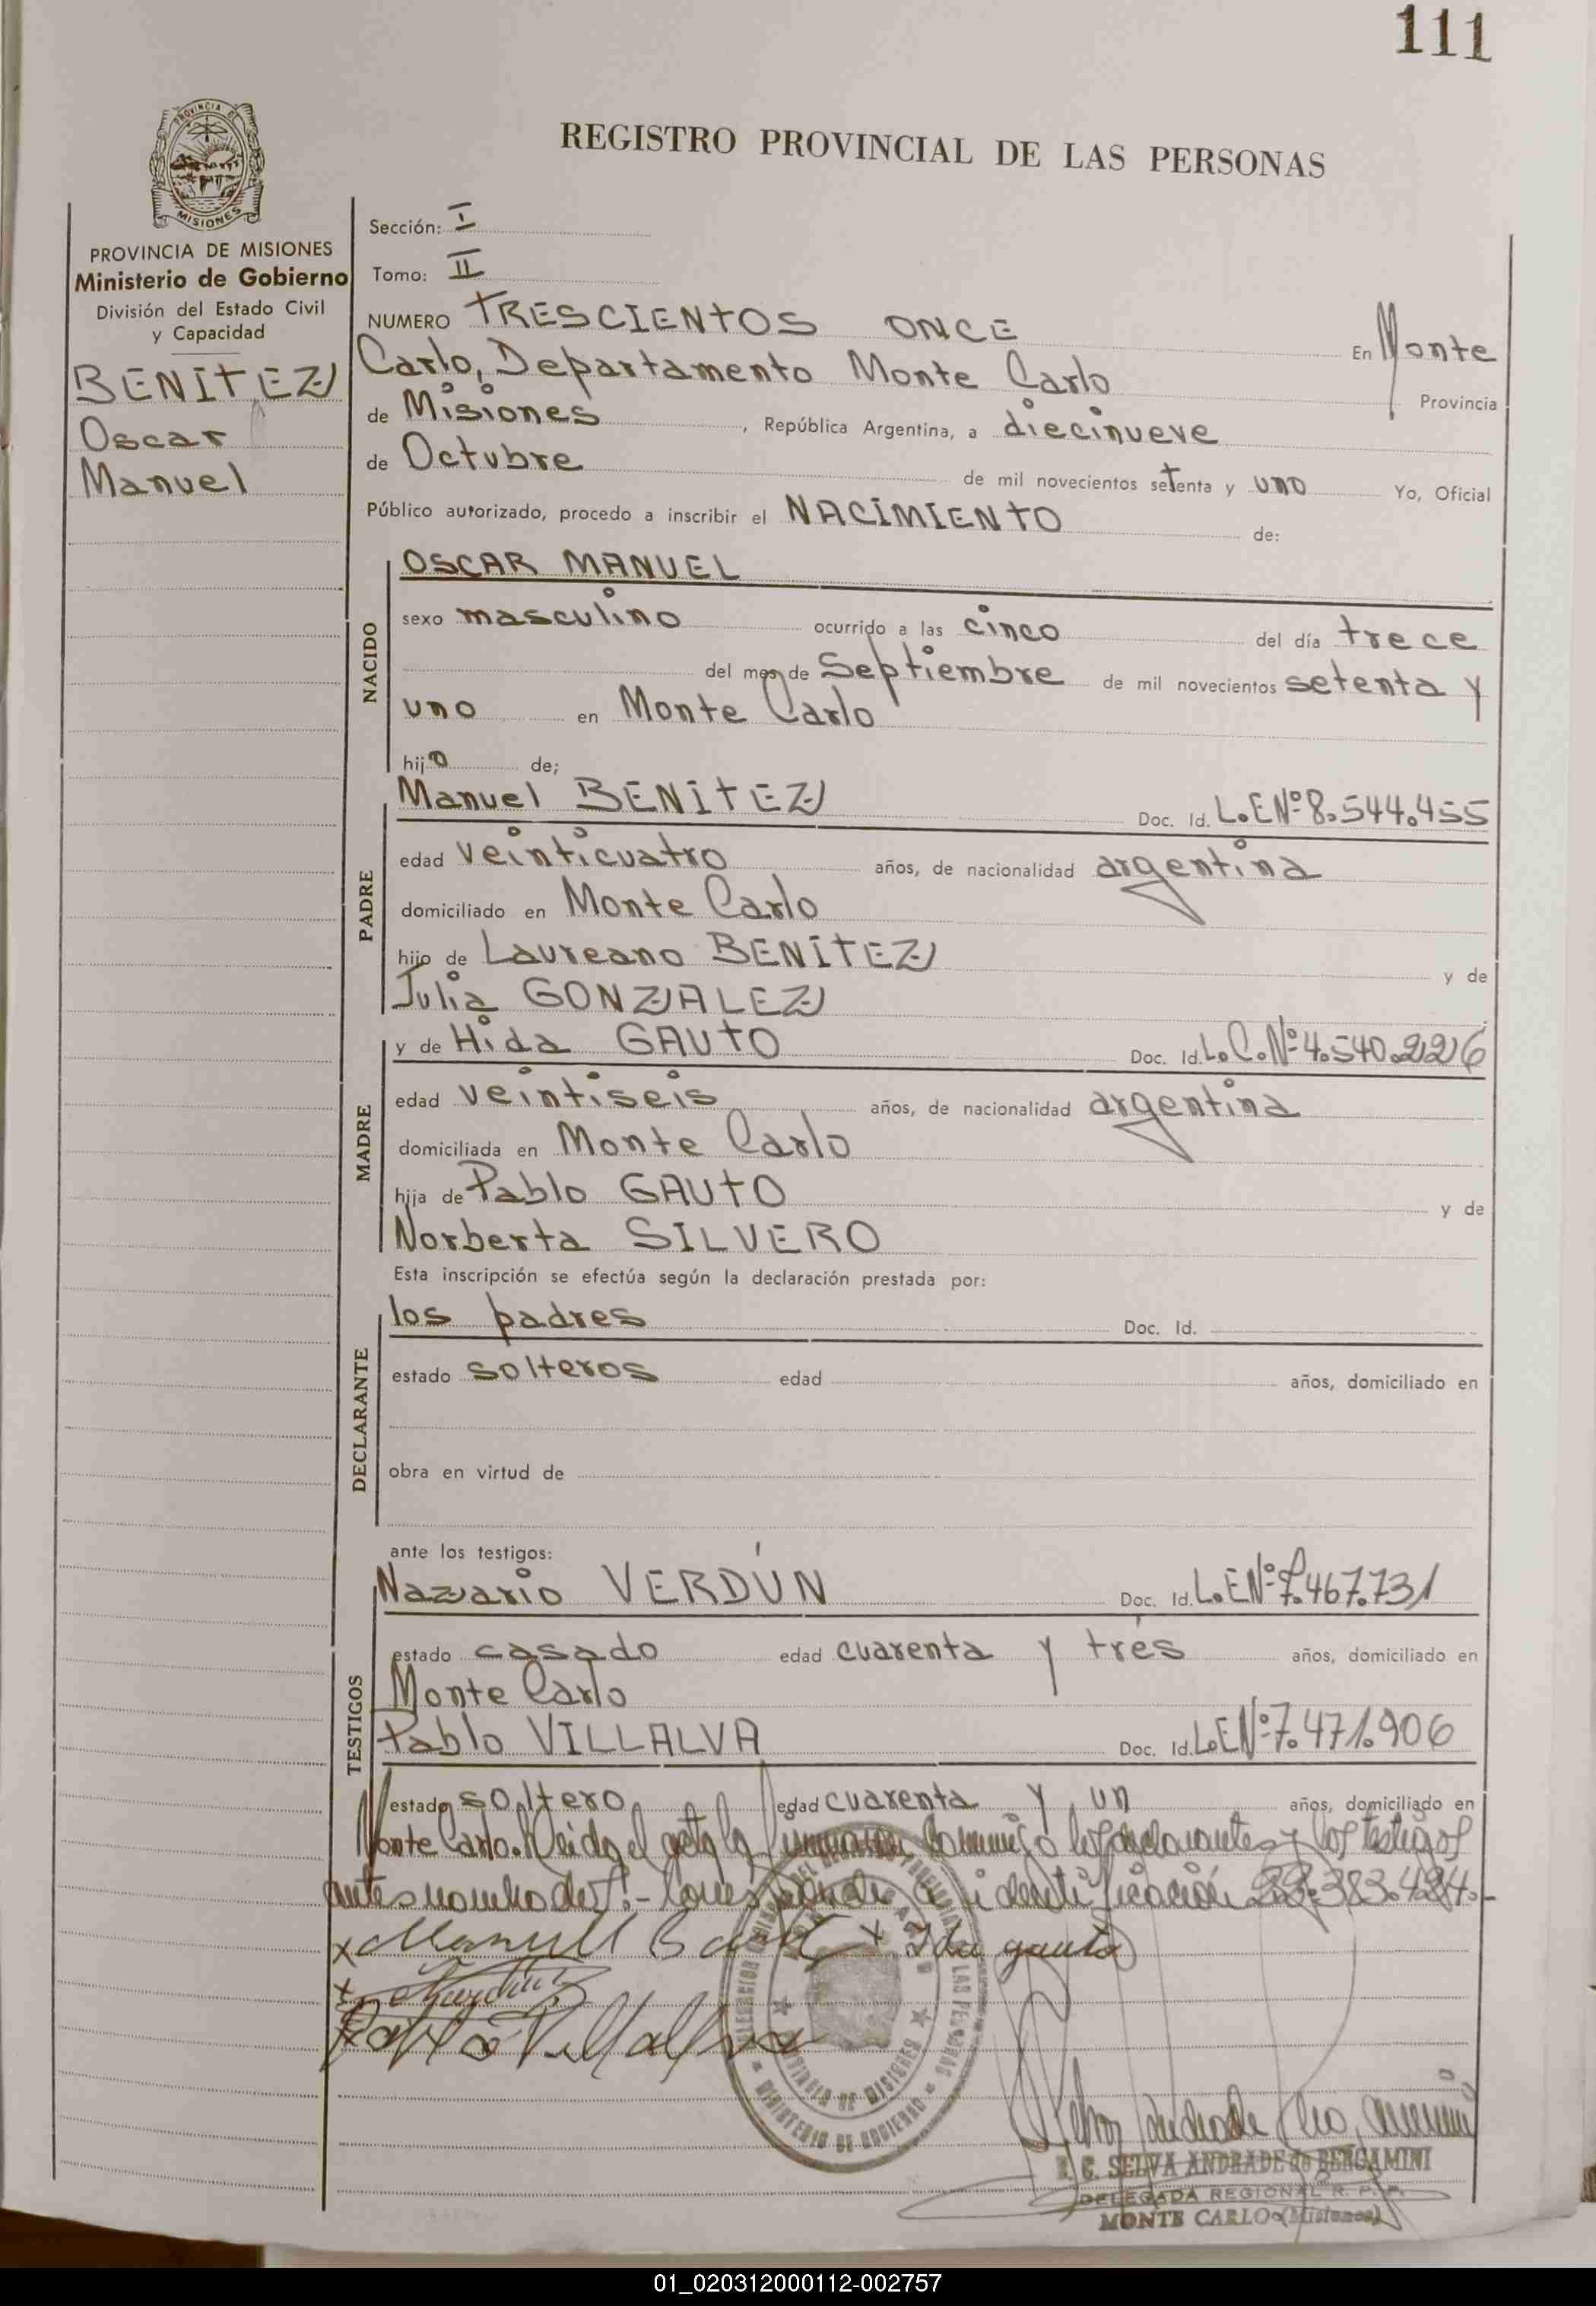 111
PROVINCIA DE
MISIONES
REGISTRO PROVINCIAL DE LAS PERSONAS
PROVINCIA DE MISIONES
Ministerio de Gobierno
División del Estado Civil
y Capacidad
BENÍTEZ
Oscar
Manuel
Sección: I
Tomo: II
NUMERO TRESCIENTOS ONCE En Monte
Carlo, Departamento Monte Carlo Provincia
de Misiones, República Argentina, a diecinueve
de Octubre de mil novecientos setenta y uno Yo, Oficial
Público autorizado, procedo a inscribir el NACIMIENTO de:
NACIDO
OSCAR MANUEL
sexo masculino ocurrido a las cinco del día trece
del mes de Septiembre de mil novecientos setenta y
uno en Monte Carlo
hijo de;
PADRE
Manuel BENÍTEZ Doc. Id. L.E Nº 8.544.455
edad veinticuatro años, de nacionalidad argentina
domiciliado en Monte Carlo
hijo de Laureano BENÍTEZ y de
Julia GONZALEZ
MADRE
y de Hida GAUTO Doc. Id. L.C. Nº 4.540.226
edad veintiseis años, de nacionalidad argentina
domiciliada en Monte Carlo
hija de Pablo GAUTO y de
Norberta SILVERO
Esta inscripción se efectúa según la declaración prestada por:
DECLARANTE
los padres Doc. Id.
estado solteros edad años, domiciliado en
obra en virtud de
ante los testigos:
TESTIGOS
Nazario VERDÚN Doc. Id. L.E Nº 7.467.731
estado casado edad cuarenta y trés años, domiciliado en
Monte Carlo
Pablo VILLALVA Doc. Id. L.E Nº 7.471.906
estado soltero edad cuarenta y un años, domiciliado en
Monte Carlo. Leida el acta la conmigo los declarantes y los testigos
antes nombrados.- Corresponde a identificación
x Manuel x Ida gauto
Pablo Villalva
MINISTERIO DE GOBIERNO
DE MISIONES
LAS PERSONAS
Selva Andrade
SELVA ANDRADE de BERGAMINI
DELEGADA REGIONAL R. P. P.
MONTE CARLO (Misiones)
01_020312000112-002757